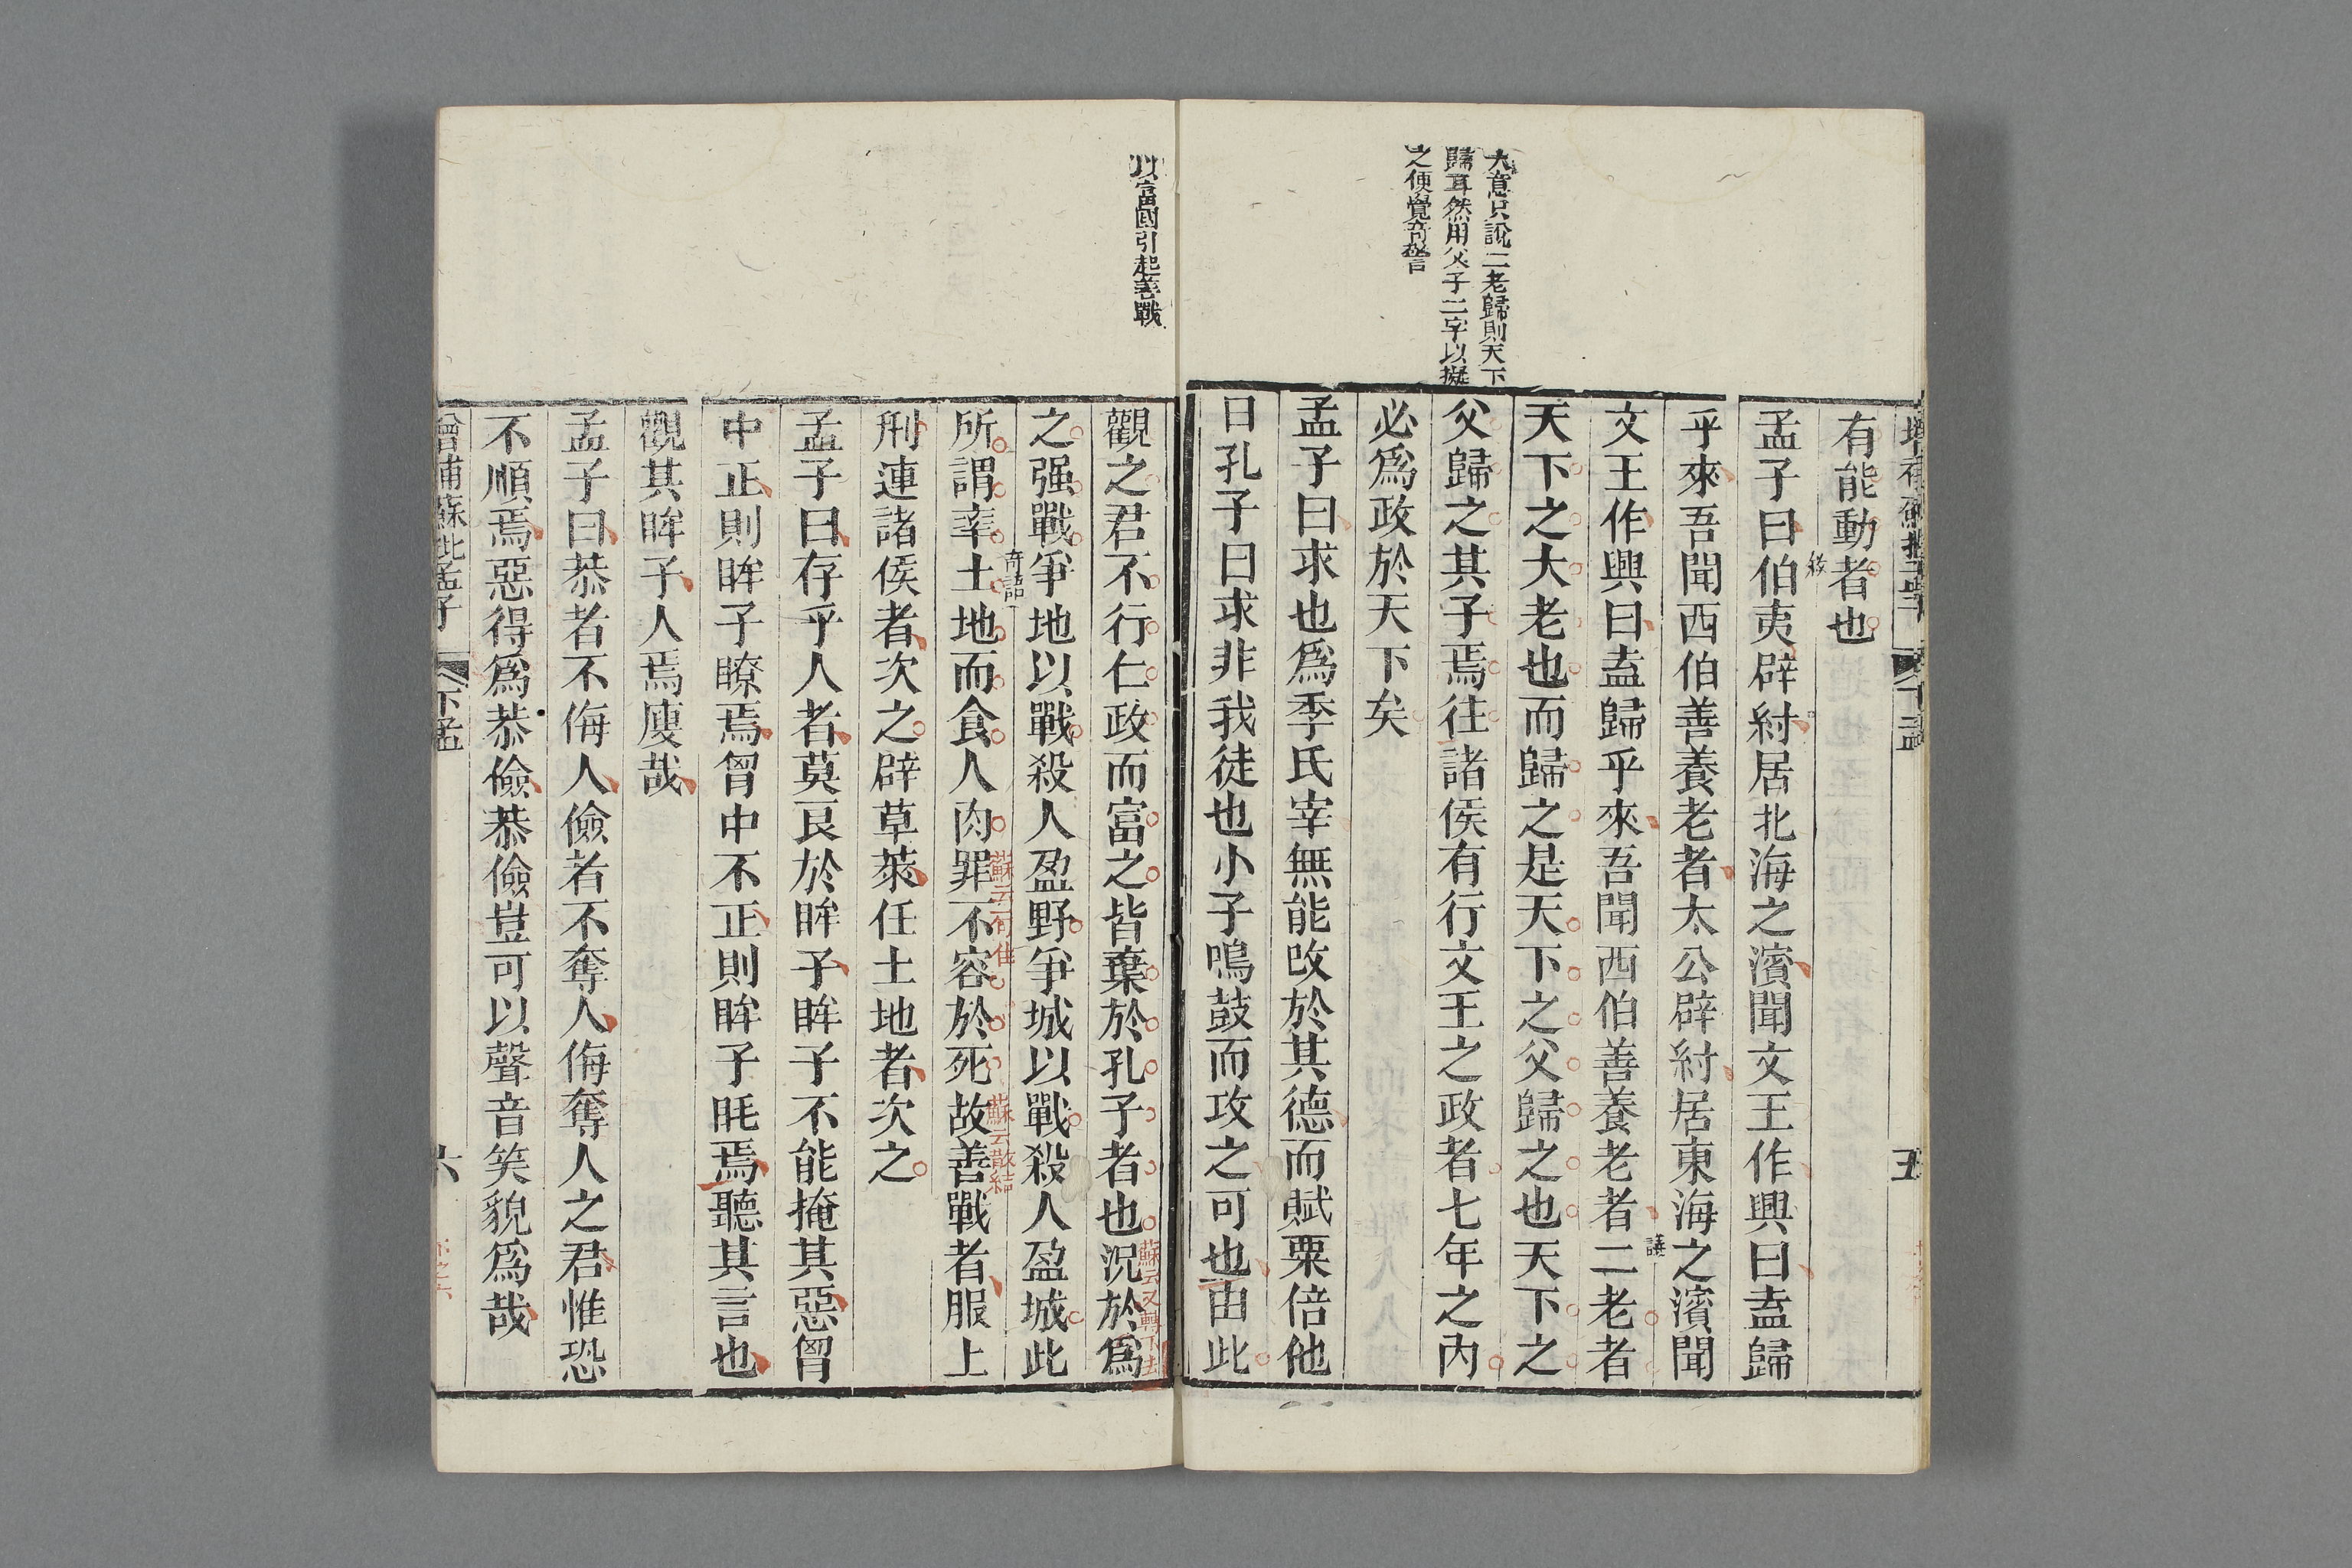 大意只說二老歸則天下
歸耳然用父子二字以擬
之便覺奇警
有能動者也
孟子曰伯夷辟紂居北海之濱聞文王作興曰盍歸
乎來吾聞西伯善養老者太公辟紂居東海之濱聞
文王作興曰盍歸乎來吾聞西伯善養老者二老者
天下之大老也而歸之是天下之父歸之也天下之
父歸之其子焉往諸侯有行文王之政者七年之內
必爲政於天下矣
孟子曰求也爲季氏宰無能改於其德而賦粟倍他
日孔子曰求非我徒也小子鳴鼓而攻之可也由此
五
以富國引起善戰
觀之君不行仁政而富之皆棄於孔子者也況於爲
蘇云又轉下去
之强戰爭地以戰殺人盈野爭城以戰殺人盈城此
奇語
所謂率土地而食人肉罪不容於死故善戰者服上
蘇云句佳
蘇云散結
刑連諸侯者次之辟草萊任土地者次之
孟子曰存乎人者莫良於眸子眸子不能掩其惡胷
中正則眸子瞭焉胷中不正則眸子眊焉聽其言也
觀其眸子人焉廋哉
孟子曰恭者不侮人儉者不奪人侮奪人之君惟恐
不順焉惡得爲恭儉恭儉豈可以聲音笑貌爲哉
增補蘇批孟子
下孟
六